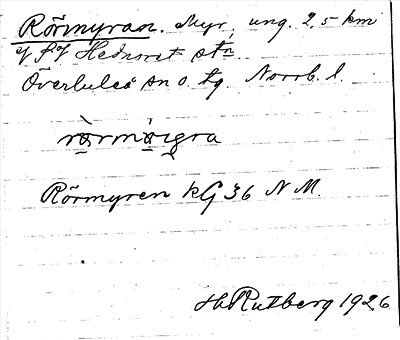 Rörmyran. Myr, ung. 2,5 km
V f V Hednoret stn
Överluleå sn o. tg. Norrb. l.
rörmöigra
Rörmyren kG 36 N M.
H Rutberg 1926